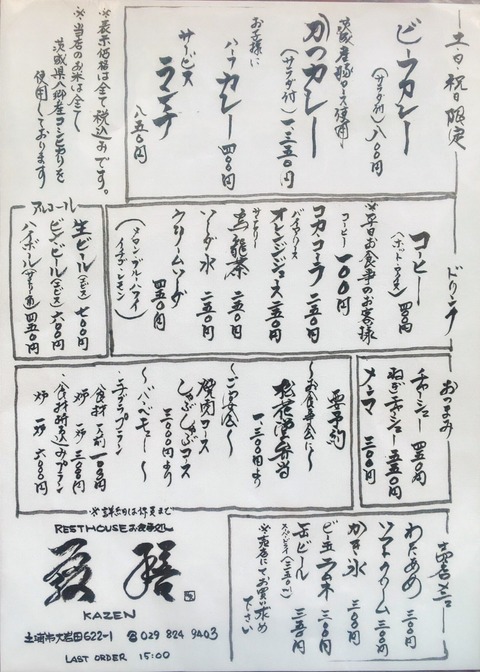 土・日・祝日限定
ビーフカレー
(サラダ付) 八〇〇円
茨城産豚ロース使用
かつカレー
(サラダ付) 一三五〇円
お子様に
ハーフカレー 四〇〇円
サービス
ランチ
八五〇円
※表示価格は全て税込みです。
※当店のお米は全て
茨城県八郷産コシヒカリを
使用しております
ドリンク
コーヒー
(ホット・アイス) 四〇〇円
※平日お食事のお客様
コーヒー 一〇〇円
コカコーラ 二五〇円
バイヤリース
オレンジジュース 二五〇円
サントリー
烏龍茶 二五〇円
ソーダ水 二五〇円
クリームソーダ
四五〇円
(メロン・ブルーハワイ
イチゴ・レモン)
アルコール
生ビール(エビス) 七〇〇円
ビンビール(エビス) 六〇〇円
ハイボール(サントリー角) 四五〇円
おつまみ
チャーシュー 四五〇円
ねぎチャーシュー 五五〇円
メンマ 三〇〇円
要予約
〜お食事会に〜
松花堂弁当
一、三〇〇円より
〜ご宴会〜
焼肉コース
しゃぶしゃぶコース
三〇〇〇円より
〜バーベキュー〜
・手ブラプラン
・食材持込みプラン
炉 一炉 六〇〇〇円
※詳細は係員まで
売店メニュー
わたあめ 三〇〇円
ソフトクリーム 三〇〇円
かき氷 三〇〇円
ビー玉ラムネ
缶ビール 三五〇円
※売店にてお買い求め
下さい
RESTHOUSE お食事処
KAZEN
土浦市大岩田622-1 ☎029 824 9403
LAST ORDER 15:00